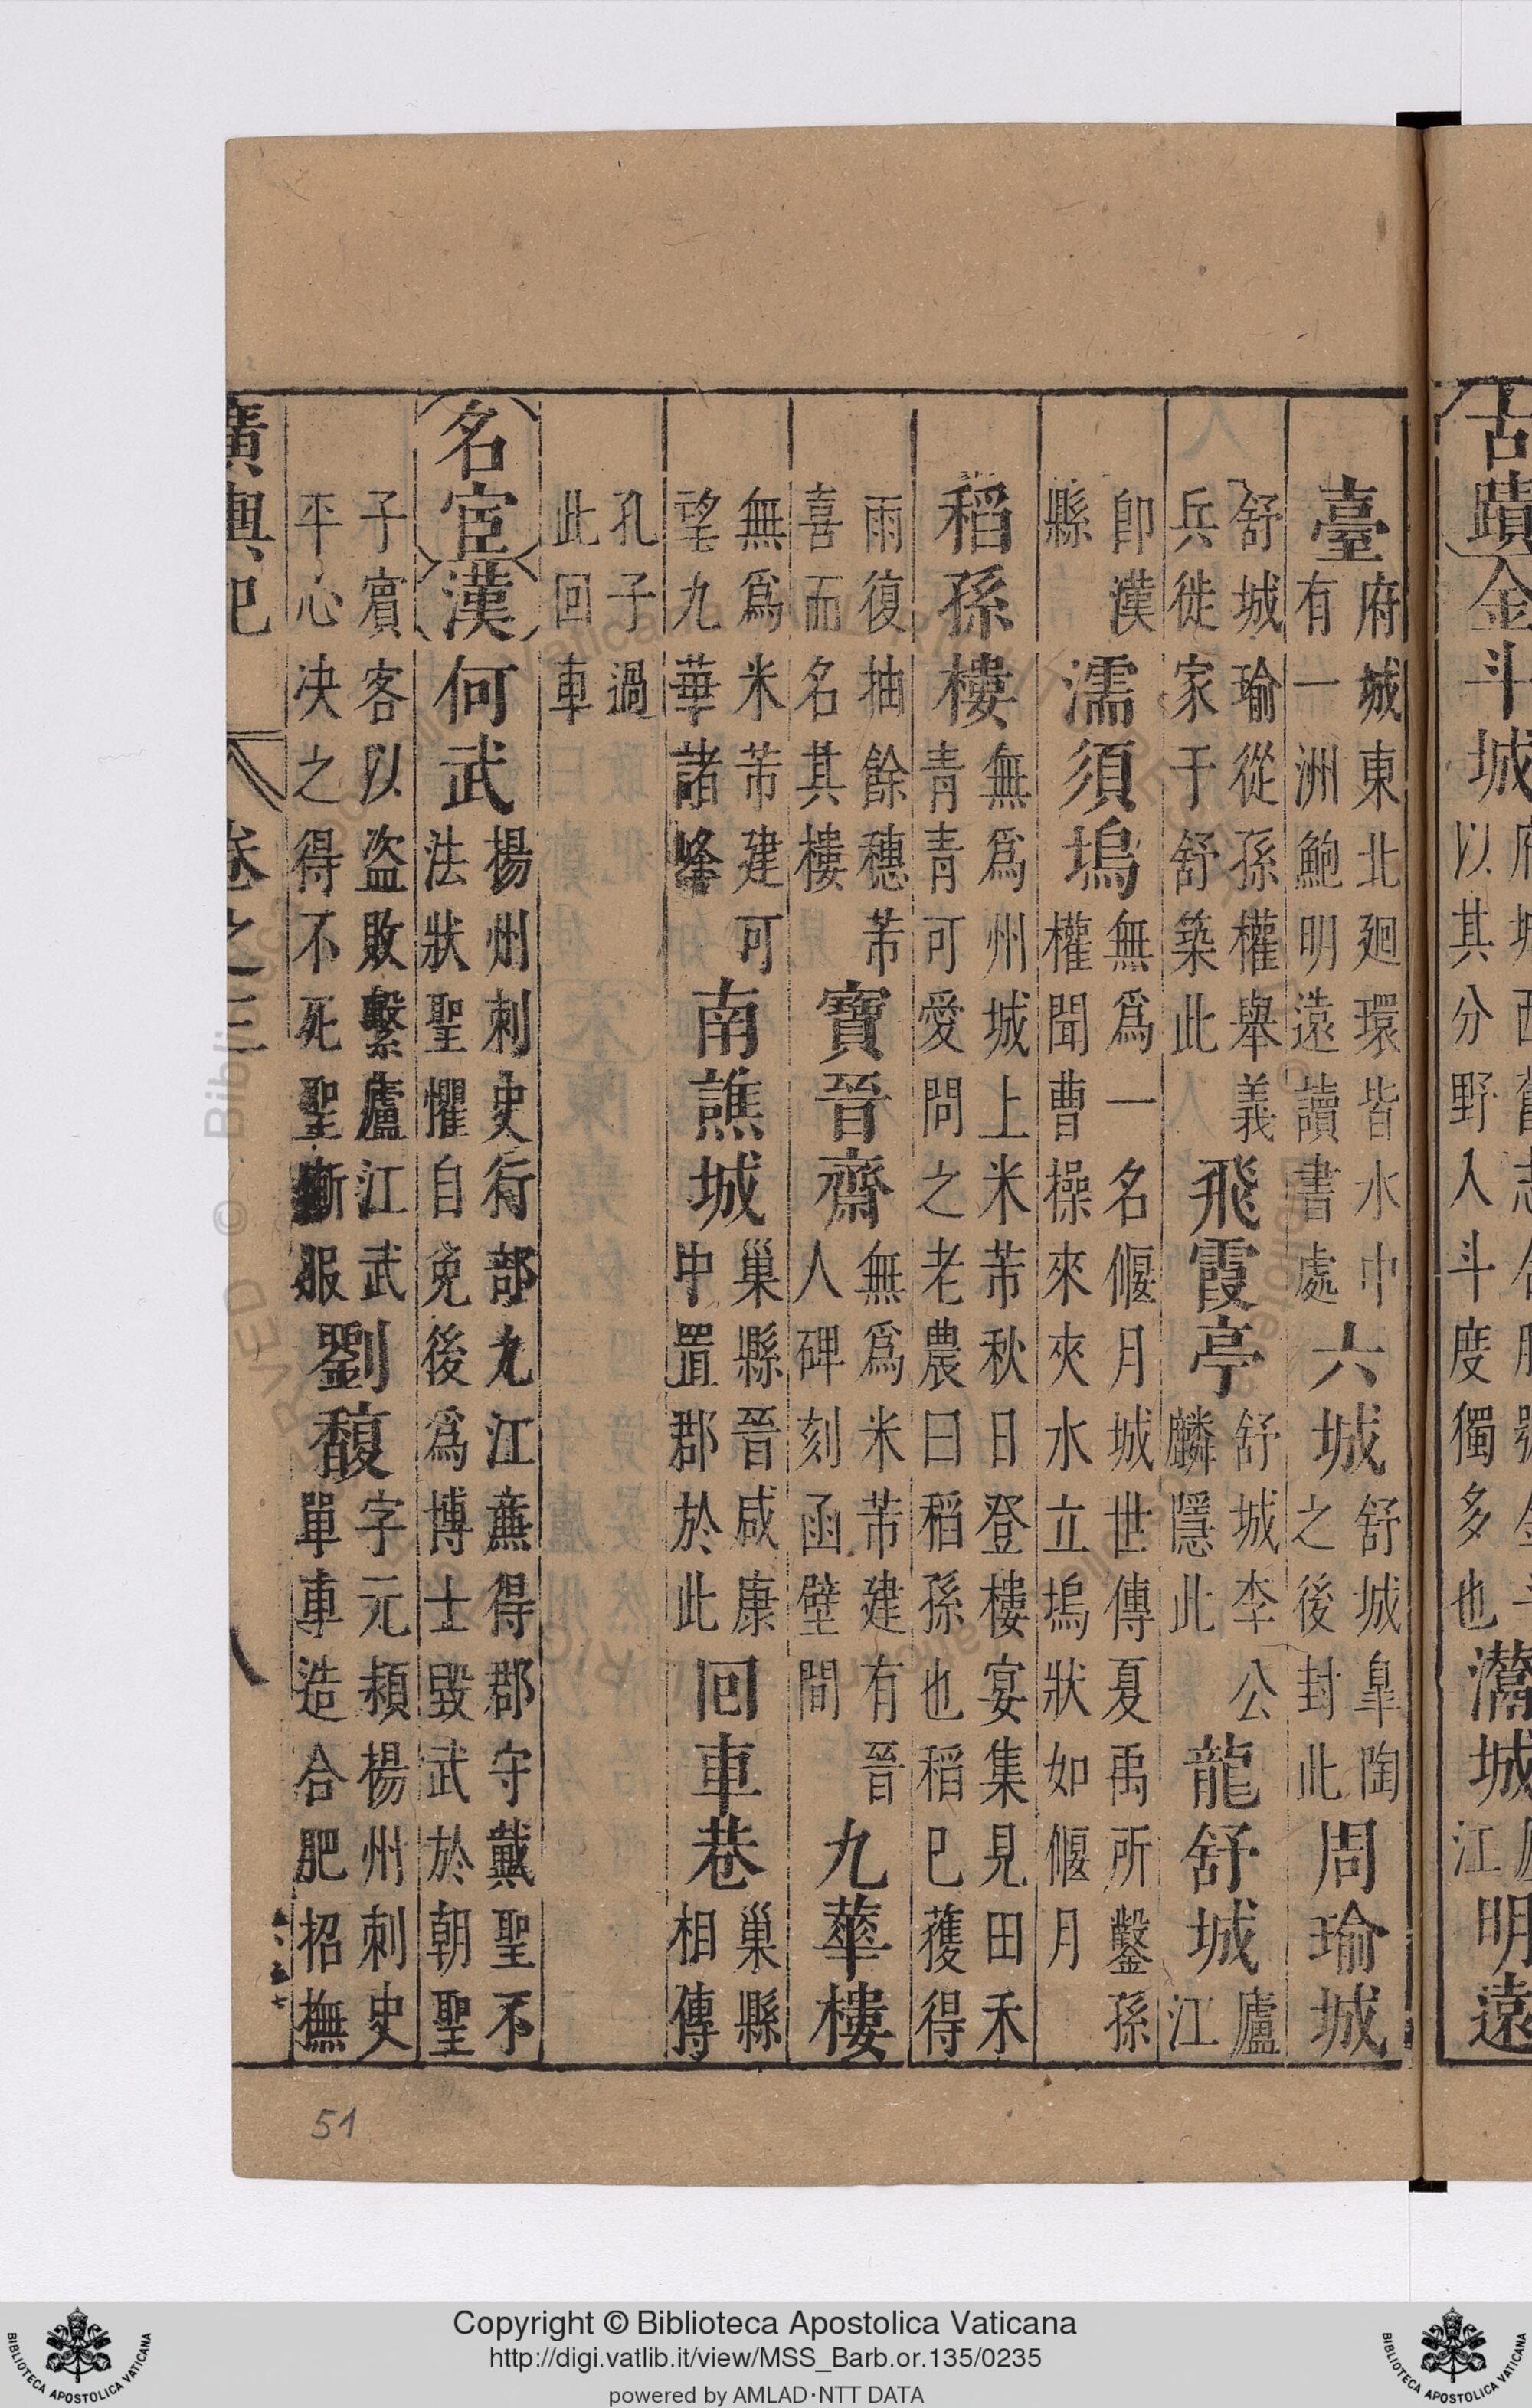 古蹟 金斗城
以其分野入斗度獨多也 城 江 明遠
臺 府城東北廻環皆水中有一洲鮑明遠讀書處 六城 舒城臯陶之後封此 周瑜城
舒城瑜從孫權舉義兵徙家于舒築此 飛霞亭 舒城李公麟隱此 龍舒城 廬江
卽漢縣 濡須塢 無爲一名偃月城世傳夏禹所鑿孫權聞曹操來夾水立塢狀如偃月
稻孫樓 無爲州城上米芾秋日登樓宴集見田禾青青可愛問之老農曰稻孫也稻已穫得
雨復抽餘穗芾喜而名其樓 寶晉齋 無爲米芾建有晉人碑刻函壁間 九華樓
無爲米芾建可望九華諸峰 南譙城 巢縣晉咸康中置郡於此 回車巷 巢縣相傳
孔子過此回車
名宦 漢 何武 楊州刺史行部九江蕪得郡守戴聖不法狀聖懼自免後爲博士毀武於朝聖
子賓客以盜敗繫廬江武平心決之得不死聖慚服 劉馥 字元潁楊州刺史單車造合肥招撫
廣輿記 卷之三 八
51
Copyright © Biblioteca Apostolica Vaticana
http://digi.vatlib.it/view/MSS_Barb.or.135/0235
powered by AMLAD·NTT DATA
BIBLIOTECA APOSTOLICA VATICANA
BIBLIOTECA APOSTOLICA VATICANA